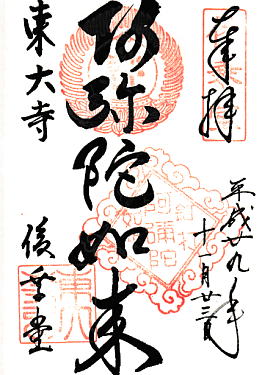 奉拝
平成廿九年
十一月廿三日
阿弥陀如来
東大寺
俊乗堂